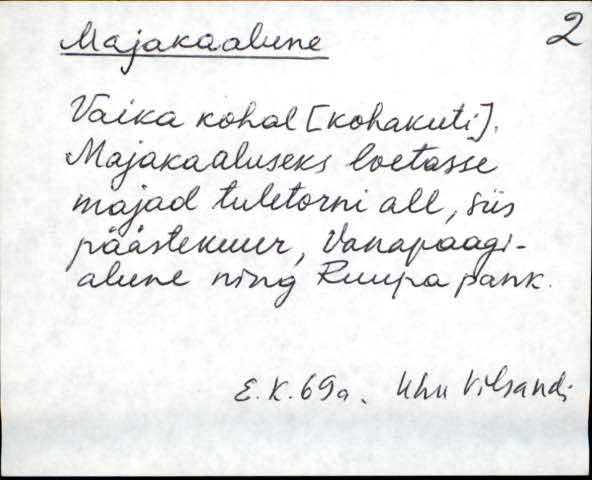 Majakaalune 2
Vaika kohal [kohakuti].
Majakaaluseks loetasse
majad tuletorni all, siis
päästekuur, Vanapaagi-
alune ning Ruupa pank.
E.K. 69a. Uhu Vilsandi